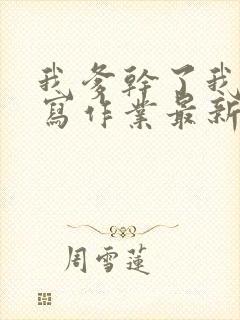 我爹幹了我
寫作業最新
周雪蓮